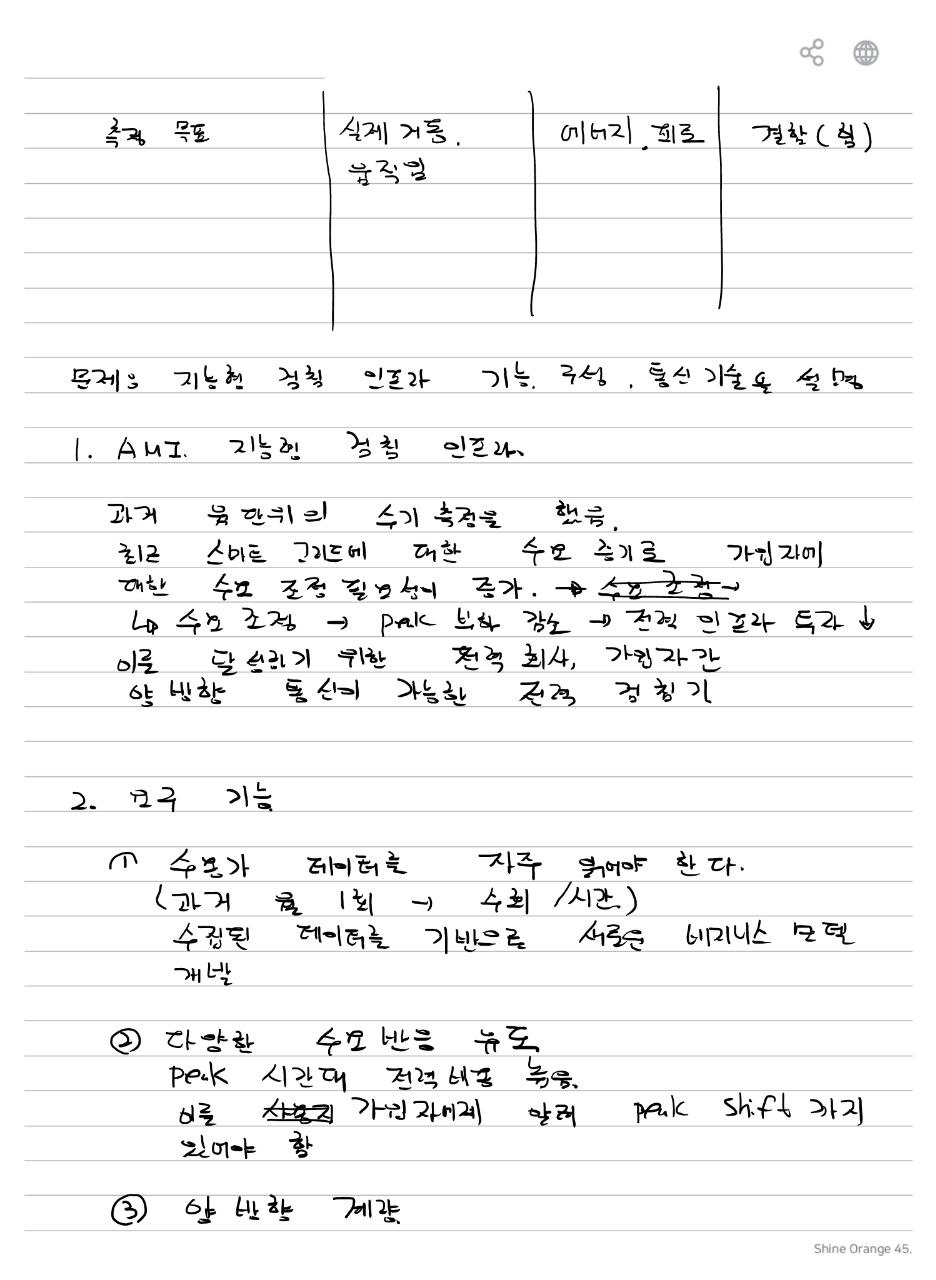 측정 목표 실제 거동. 에너지. 피로 결함 (힘)
움직임
문제8 지능형 검침 인프라 기능. 구성. 통신기술을 설명
1. AMI. 지능형 검침 인프라.
과거 월 단위의 수기 측정을 했음.
최근 스마트 그리드에 대한 수요 증가로 가입자에
대한 수요 조정 필요성이 증가. → 수요 조정
↳ 수요 조정 → peak 부하 감소 → 전력 인프라 투자 ↓
이를 달성하기 위한 전력 회사, 가입자간
양방향 통신이 가능한 전력 검침기
2. 요구 기능
① 수용가 데이터를 자주 읽어야 한다.
(과거 월 1회 → 수회 /시간)
수집된 데이터를 기반으로 새로운 비지니스 모델
개발
② 다양한 수요반응 유도
peak 시간대 전력 비용 높음.
이를 가입자에게 알려 peak shift 가지
있어야 함
③ 양방향 계량.
Shine Orange 45.